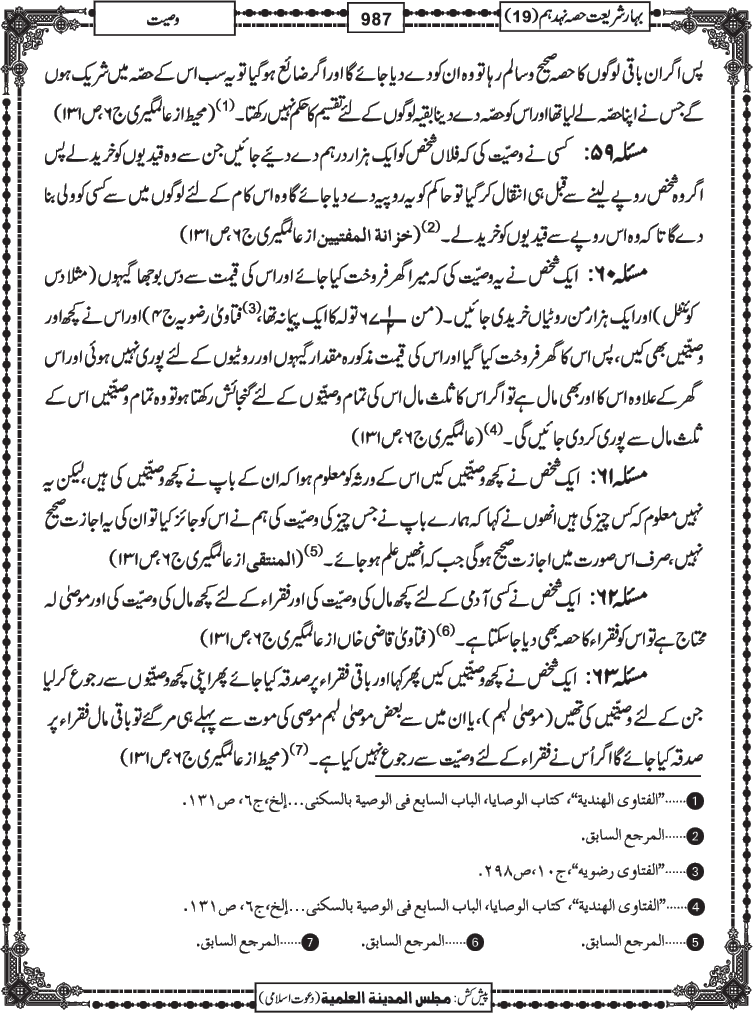 بہار شریعت حصہ نہدہم (19)
987
وصیت
پس اگر ان باقی لوگوں کا حصہ صحیح و سالم رہا تو وہ ان کو دے دیا جائے گا اور اگر ضائع ہوگیا تو یہ سب اس کے حصّہ میں شریک ہوں
گے جس نے اپنا حصّہ لے لیا تھا اور اس کو حصّہ دے دینا بقیہ لوگوں کے لئے تقسیم کا حکم نہیں رکھتا۔(1) (محیط از عالمگیری ج۶،ص۱۳۱)
مسئلہ ۵۹: کسی نے وصیّت کی کہ فلاں شخص کو ایک ہزار درہم دے دئیے جائیں جن سے وہ قیدیوں کو خرید لے پس
اگر وہ شخص روپے لینے سے قبل ہی انتقال کر گیا تو حاکم کو یہ روپیہ دے دیا جائے گا وہ اس کام کے لئے لوگوں میں سے کسی کو ولی بنا
دے گا تاکہ وہ اس روپے سے قیدیوں کو خرید لے۔(2) (خزانة المفتیین از عالمگیری ج۶،ص۱۳۱)
مسئلہ ۶۰: ایک شخص نے یہ وصیّت کی کہ میرا گھر فروخت کیا جائے اور اس کی قیمت سے دس بوجھا گیہوں (مثلا دس
کوئنٹل) اور ایک ہزار من روٹیاں خریدی جائیں۔ (من ۶۷ ۱/۲ تولہ کا ایک پیمانہ تھا،(3) فتاویٰ رضویہ ج۴) اور اس نے کچھ اور
وصیّتیں بھی کیں، پس اس کا گھر فروخت کیا گیا اور اس کی قیمت مذکورہ مقدار گیہوں اور روٹیوں کے لئے پوری نہیں ہوئی اور اس
گھر کے علاوہ اس کا اور بھی مال ہے تو اگر اس کا ثلث مال اس کی تمام وصیّتوں کے لئے گنجائش رکھتا ہو تو وہ تمام وصیّتیں اس کے
ثلث مال سے پوری کر دی جائیں گی۔(4) (عالمگیری ج۶،ص۱۳۱)
مسئلہ ۶۱: ایک شخص نے کچھ وصیّتیں کیں اس کے ورثہ کو معلوم ہوا کہ ان کے باپ نے کچھ وصیّتیں کی ہیں، لیکن یہ
نہیں معلوم کہ کس چیز کی ہیں انھوں نے کہا کہ ہمارے باپ نے جس چیز کی وصیّت کی ہم نے اس کو جائز کیا تو ان کی یہ اجازت صحیح
نہیں، صرف اس صورت میں اجازت صحیح ہوگی جب کہ انھیں علم ہو جائے۔(5) (المنتقی از عالمگیری ج۶،ص۱۳۱)
مسئلہ ۶۲: ایک شخص نے کسی آدمی کے لئے کچھ مال کی وصیّت کی اور فقراء کے لئے کچھ مال کی وصیّت کی اور موصیٰ لہ
محتاج ہے تو اس کو فقراء کا حصہ بھی دیا جاسکتا ہے۔(6) (فتاویٰ قاضی خاں از عالمگیری ج۶،ص۱۳۱)
مسئلہ ۶۳: ایک شخص نے کچھ وصیّتیں کیں پھر کہا اور باقی فقراء پر صدقہ کیا جائے پھر اپنی کچھ وصیّتوں سے رجوع کر لیا
جن کے لئے وصیّتیں کی تھیں (موصیٰ لہم)، یا ان میں سے بعض موصیٰ لہم موصی کی موت سے پہلے ہی مر گئے تو باقی مال فقراء پر
صدقہ کیا جائے گا اگر اُس نے فقراء کے لئے وصیّت سے رجوع نہیں کیا ہے۔(7) (محیط از عالمگیری ج۶،ص۱۳۱)
1......”الفتاوی الھندیة“، کتاب الوصایا، الباب السابع فی الوصیة بالسکنی...إلخ،ج٦، ص۱۳۱.
2......المرجع السابق.
3......”الفتاوی رضویه“،ج۱۰،ص۲۹۸.
4......”الفتاوی الھندیة“، کتاب الوصایا، الباب السابع فی الوصیة بالسکنی...إلخ،ج٦، ص۱۳۱.
5......المرجع السابق. 6......المرجع السابق. 7......المرجع السابق.
پیش کش: مجلس المدینة العلمیة (دعوت اسلامی)